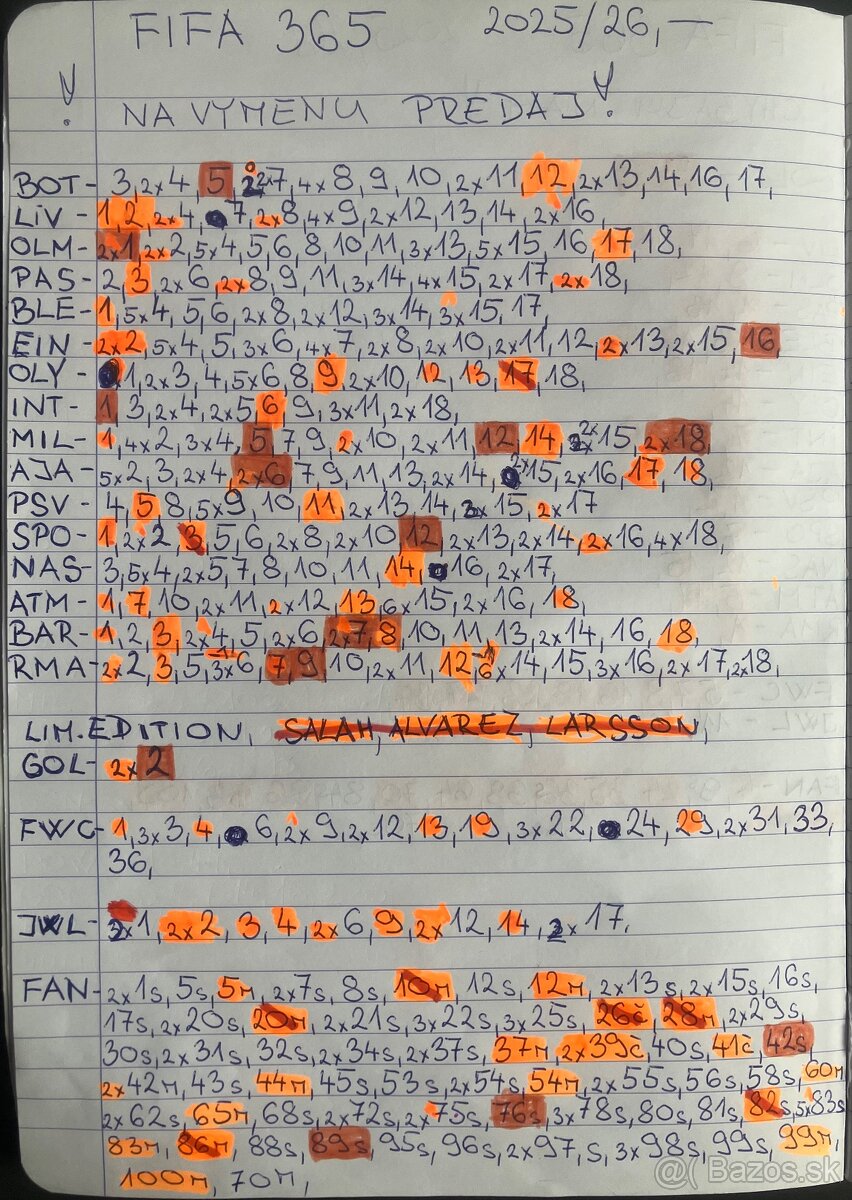 FIFA 365 2025/26,-
! NA VÝMENU PREDAJ !
BOT- 3, 2x4, 5, 2x7, 4x8, 9, 10, 2x11, 12, 2x13, 14, 16, 17,
LIV - 1, 2, 2x4, 7, 2x8, 4x9, 2x12, 13, 14, 2x16,
OLM- 2x1, 2x2, 5x4, 5, 6, 8, 10, 11, 3x13, 5x15, 16, 17, 18,
PAS- 2, 3, 2x6, 2x8, 9, 11, 3x14, 4x15, 2x17, 2x18,
BLE- 1, 5x4, 5, 6, 2x8, 2x12, 3x14, 3x15, 17,
EIN- 2x2, 5x4, 5, 3x6, 4x7, 2x8, 2x10, 2x11, 12, 2x13, 2x15, 16
OLY- 1, 2x3, 4, 5x6, 8, 9, 2x10, 12, 13, 17, 18,
INT- 1, 3, 2x4, 2x5, 6, 9, 3x11, 2x18,
MIL- 1, 4x2, 3x4, 5, 7, 9, 2x10, 2x11, 12, 14, 2x15, 2x18,
AJA- 5x2, 3, 2x4, 2x6, 7, 9, 11, 13, 2x14, 2x15, 2x16, 17, 18,
PSV- 4, 5, 8, 5x9, 10, 11, 2x13, 14, x15, 2x17
SPO- 1, 2x2, 3, 5, 6, 2x8, 2x10, 12, 2x13, 2x14, 2x16, 4x18,
NAS- 3, 5x4, 2x5, 7, 8, 10, 11, 14, 16, 2x17,
ATM- 1, 7, 10, 2x11, 2x12, 13, 6x15, 2x16, 18,
BAR- 1, 2, 3, 2x4, 5, 2x6, 2x7, 8, 10, 11, 13, 2x14, 16, 18,
RMA- 2x2, 3, 5, 3x6, 7, 9, 10, 2x11, 12, 6x14, 15, 3x16, 2x17, 2x18,
LIM. EDITION, SALAH, ALVAREZ, LARSSON,
GOL- 2x2
FWC- 1, 3x3, 4, 6, 2x9, 2x12, 13, 19, 3x22, 24, 29, 2x31, 33,
36,
JWL- x1, 2x2, 3, 4, 2x6, 9, 2x12, 14, 2x17.
FAN- 2x1s, 5s, 5m, 2x7s, 8s, 10m, 12s, 12m, 2x13s, 2x15s, 16s,
17s, 2x20s, 20m, 2x21s, 3x22s, 3x25s, 26č, 28m, 2x29s,
30s, 2x31s, 32s, 2x34s, 2x37s, 37m, 2x39č, 40s, 41č, 42s,
2x42m, 43s, 44m, 45s, 53s, 2x54s, 54m, 2x55s, 56s, 58s, 60m
2x62s, 65m, 68s, 2x72s, 2x75s, 76s, 3x78s, 80s, 81s, 82s, 5x83s
83m, 86m, 88s, 89s, 95s, 96s, 2x97, s, 3x98s, 99s, 99m,
100m, 70m,
@( Bazos.sk